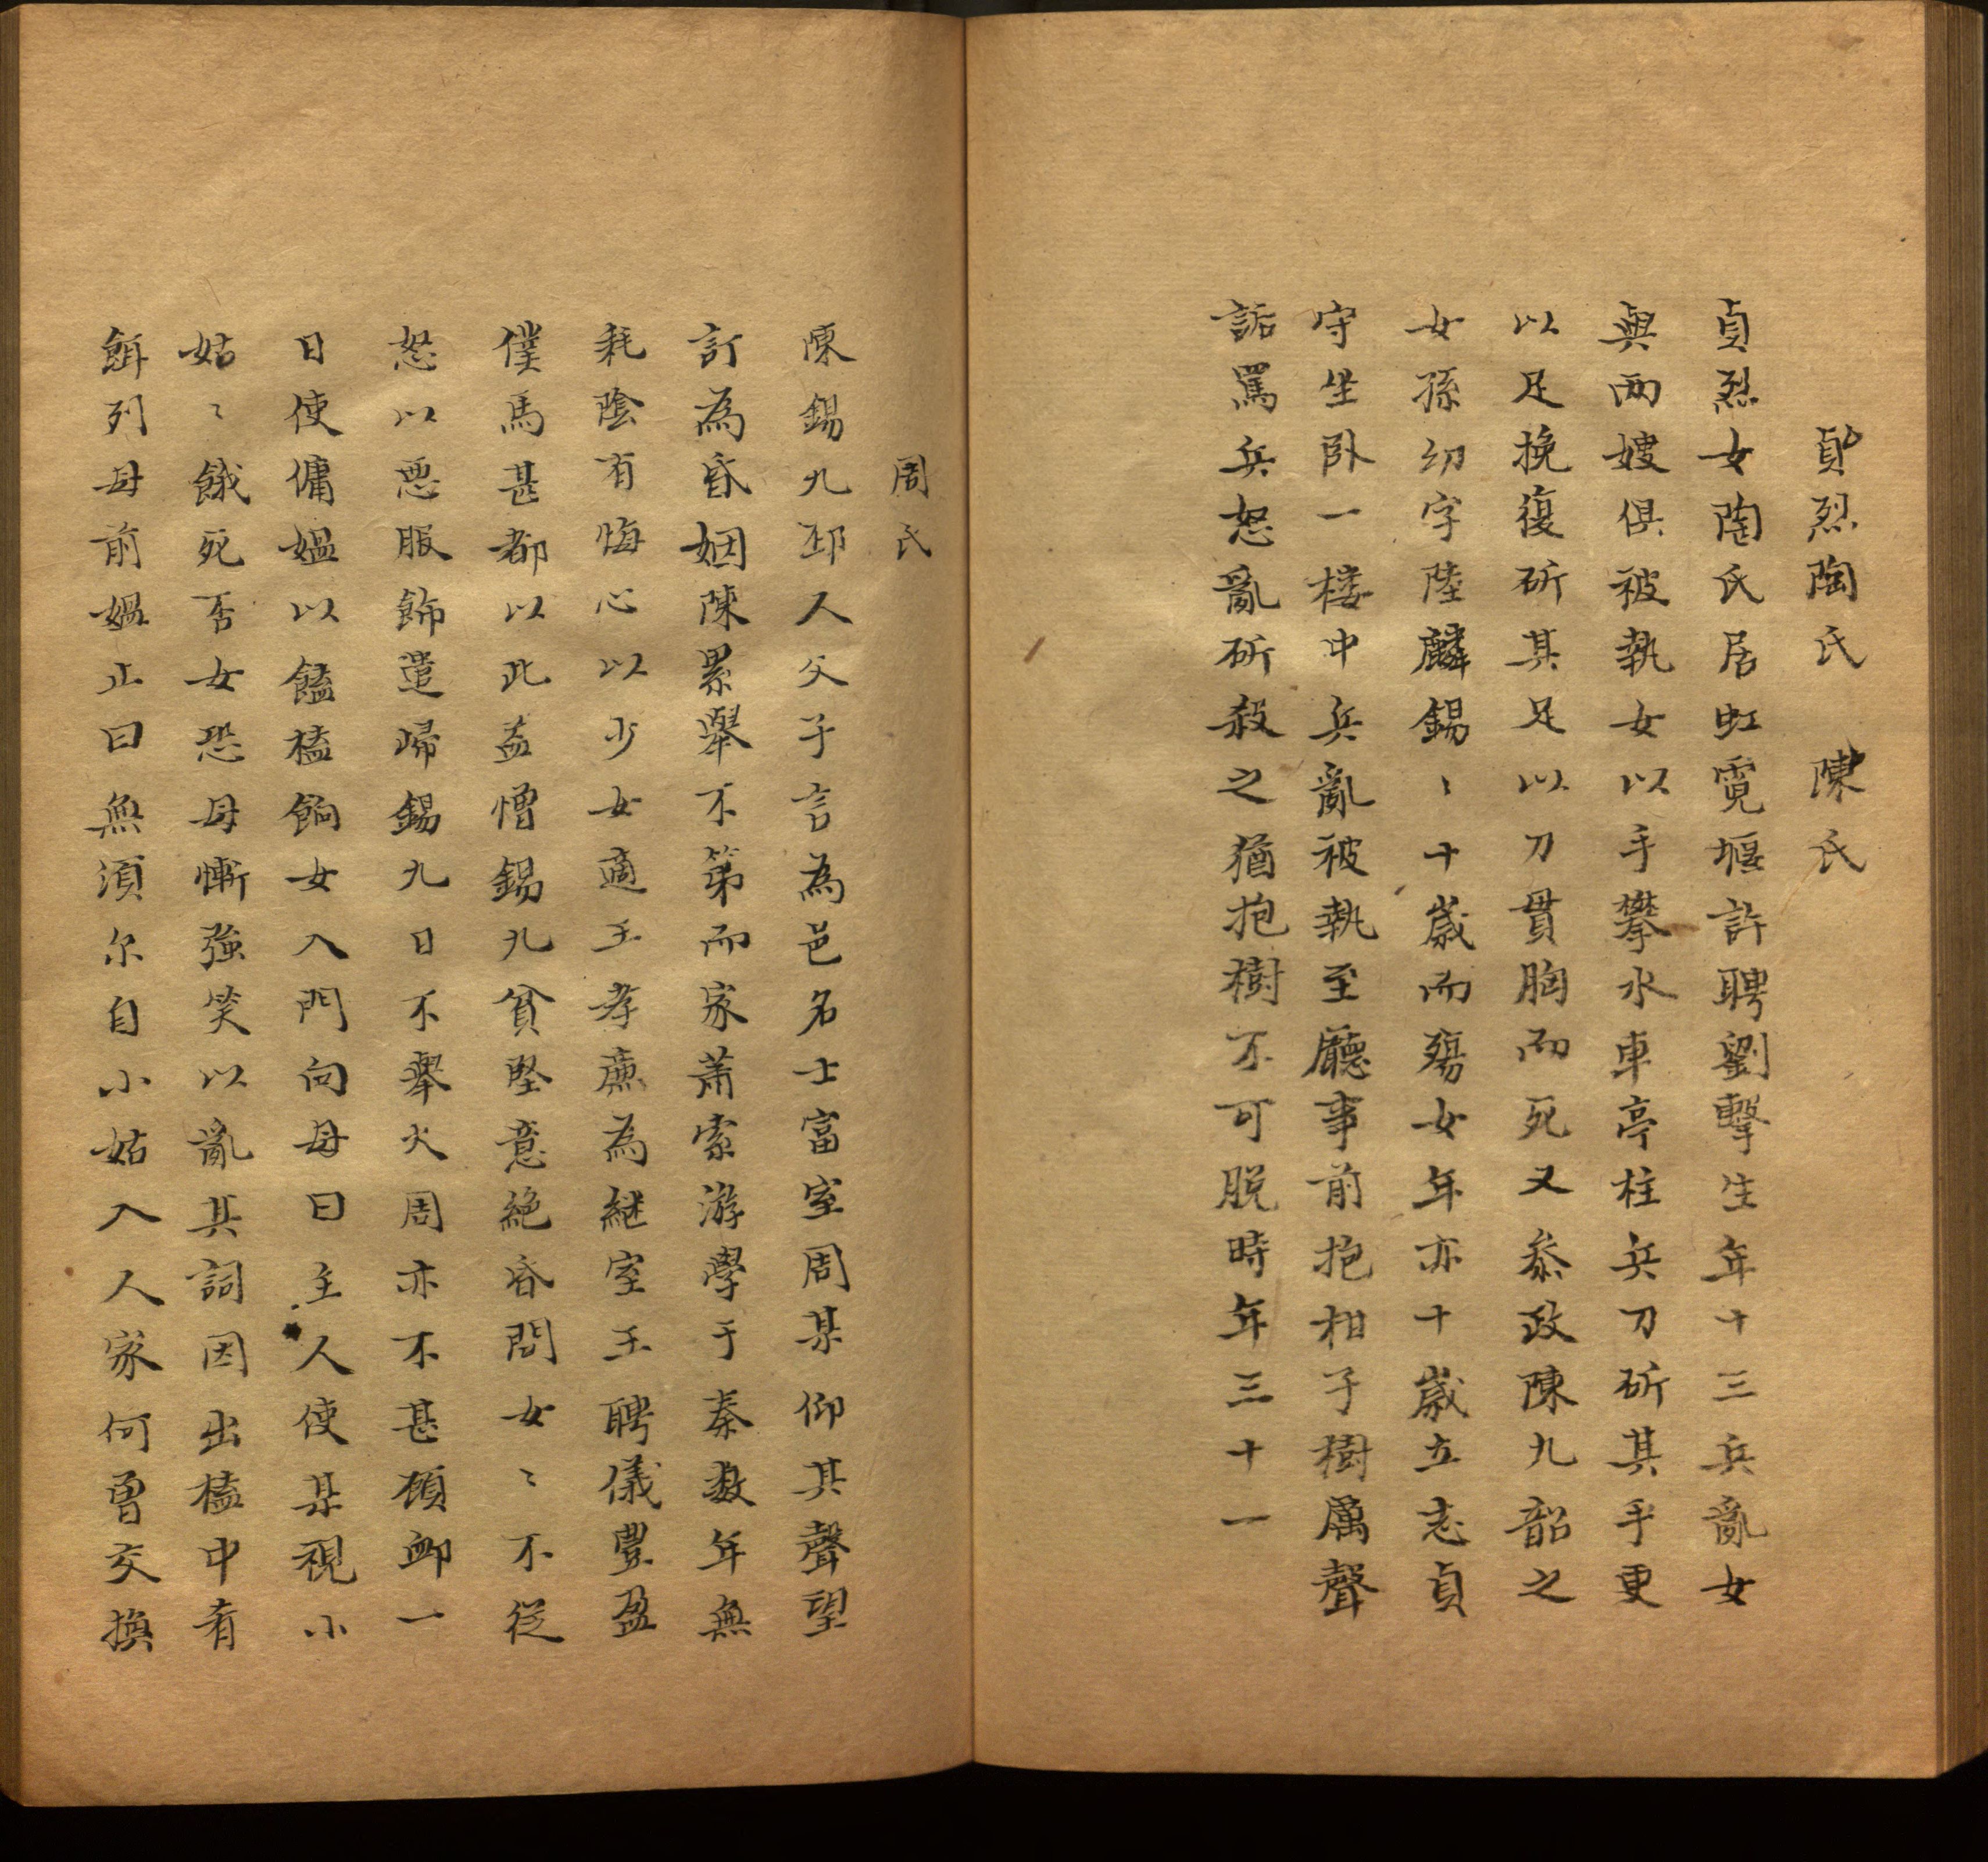 貞烈陶氏　陳氏
貞烈女陶氏居虹霓堰許聘劉擊生年十三兵亂女
與兩嫂俱被執女以手攀水車亭柱兵刀斫其手更
以足挽復斫其足以刀貫胸而死又叅政陳九韶之
女孫幼字陸麟錫〻十歲而殤女年亦十歲立志貞
守坐卧一楼中兵亂被執至廳事前抱柑子樹厲聲
詬罵兵怒亂斫殺之猶抱樹不可脱時年三十一
周氏
陳錫九邳人父子言為邑名士富室周某仰其聲望
訂為昏姻陳累舉不第而家萧索游學于秦数年無
耗陰有悔心以少女適王孝廉為継室王聘儀豐盈
僕馬甚都以此益憎錫九貧堅意絶昏問女〻不從
怒以惡服飾遣歸錫九日不舉火周亦不甚顧卹一
日使傭媼以饁榼餉女入門向母曰主人使某視小
姑〻餓死否女恐母慚強笑以亂其詞因出榼中肴
餌列母前媼止曰無須尔自小姑入人家何曾交换